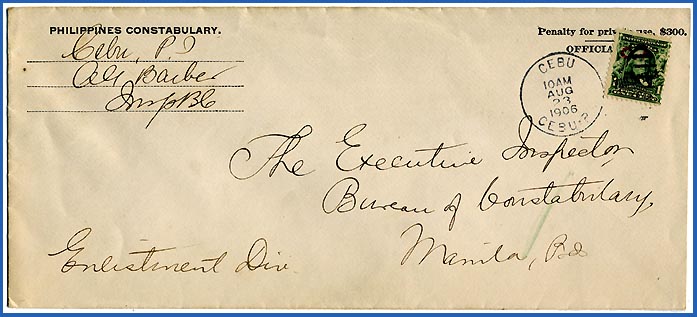 PHILIPPINES CONSTABULARY.
Cebu, P.I.
Barber
Insp PC
Penalty for private use, $300.
OFFICIA
CEBU
10AM
AUG
23
1906
CEBU-P
The Executive Inspector
Bureau of Constabulary,
Manila,
Enlistment Div.